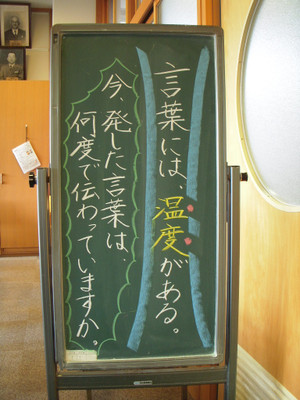 言葉には、温度がある。
今、発した言葉は、
何度で伝わっていますか。